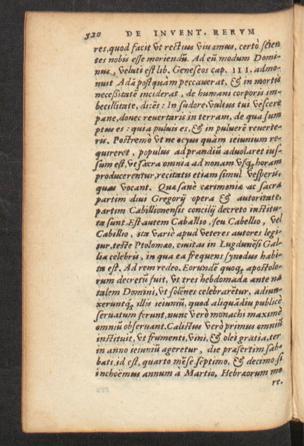 320 DE INVENT. RERVM
res, quod facit vt rectius viuamus, certò scien
tes nobis esse moriendũ. Ad eũ modum Domi-
nus, veluti est lib. Geneseos cap. III. admo-
nuit Adã postquàm peccauerat, & in mortis
necessitatẽ inciderat, de humani corporis im-
becillitate, dicẽs: In sudore vultus tui vesceris
pane, donec reuertaris in terram, de qua sum
ptus es: quia puluis es, & in puluerẽ reuerte-
ris. Postremò vt ne ocyus quàm ieiunium re-
quireret, populus ad prandiũ aduolaret ius-
sum est, vt sacra omnia ad nonam vsq; horam
producerentur, recitatis etiam simul vesperis,
quas vocant. Quæ sanè cærimonia ac sacra
partim diui Gregorij opera & autoritate,
partim Cabillonensis concilij decreto institu-
ta sunt. Est autem Caballio, seu Cabellio, vel
Cabillo, ita variè apud veteres autores legi-
tur, teste Ptolomæo, ciuitas in Lugdunẽsi Gal-
lia celebris, in qua ea frequens synodus habi-
ta est. Ad rem redeo. Eorundẽ quoq; apostolo-
rum decretũ fuit, vt tres hebdomadæ ante na
talem Domini, vt solẽnes celebraretur, adiun-
xeruntq; illis ieiuniũ, quod aliquãdiu publicè
seruatum ferunt, nunc verò monachi maximè
omniũ obseruant. Calistus verò primus omniũ
instituit, vt frumenti, vini, & olei gratia, ter
in anno ieiuniũ ageretur, die præsertim sab-
bati, id est, quarto mẽse septimo, & decimo, si
inchoẽmus annum à Martio, Hebræorum mo
re.